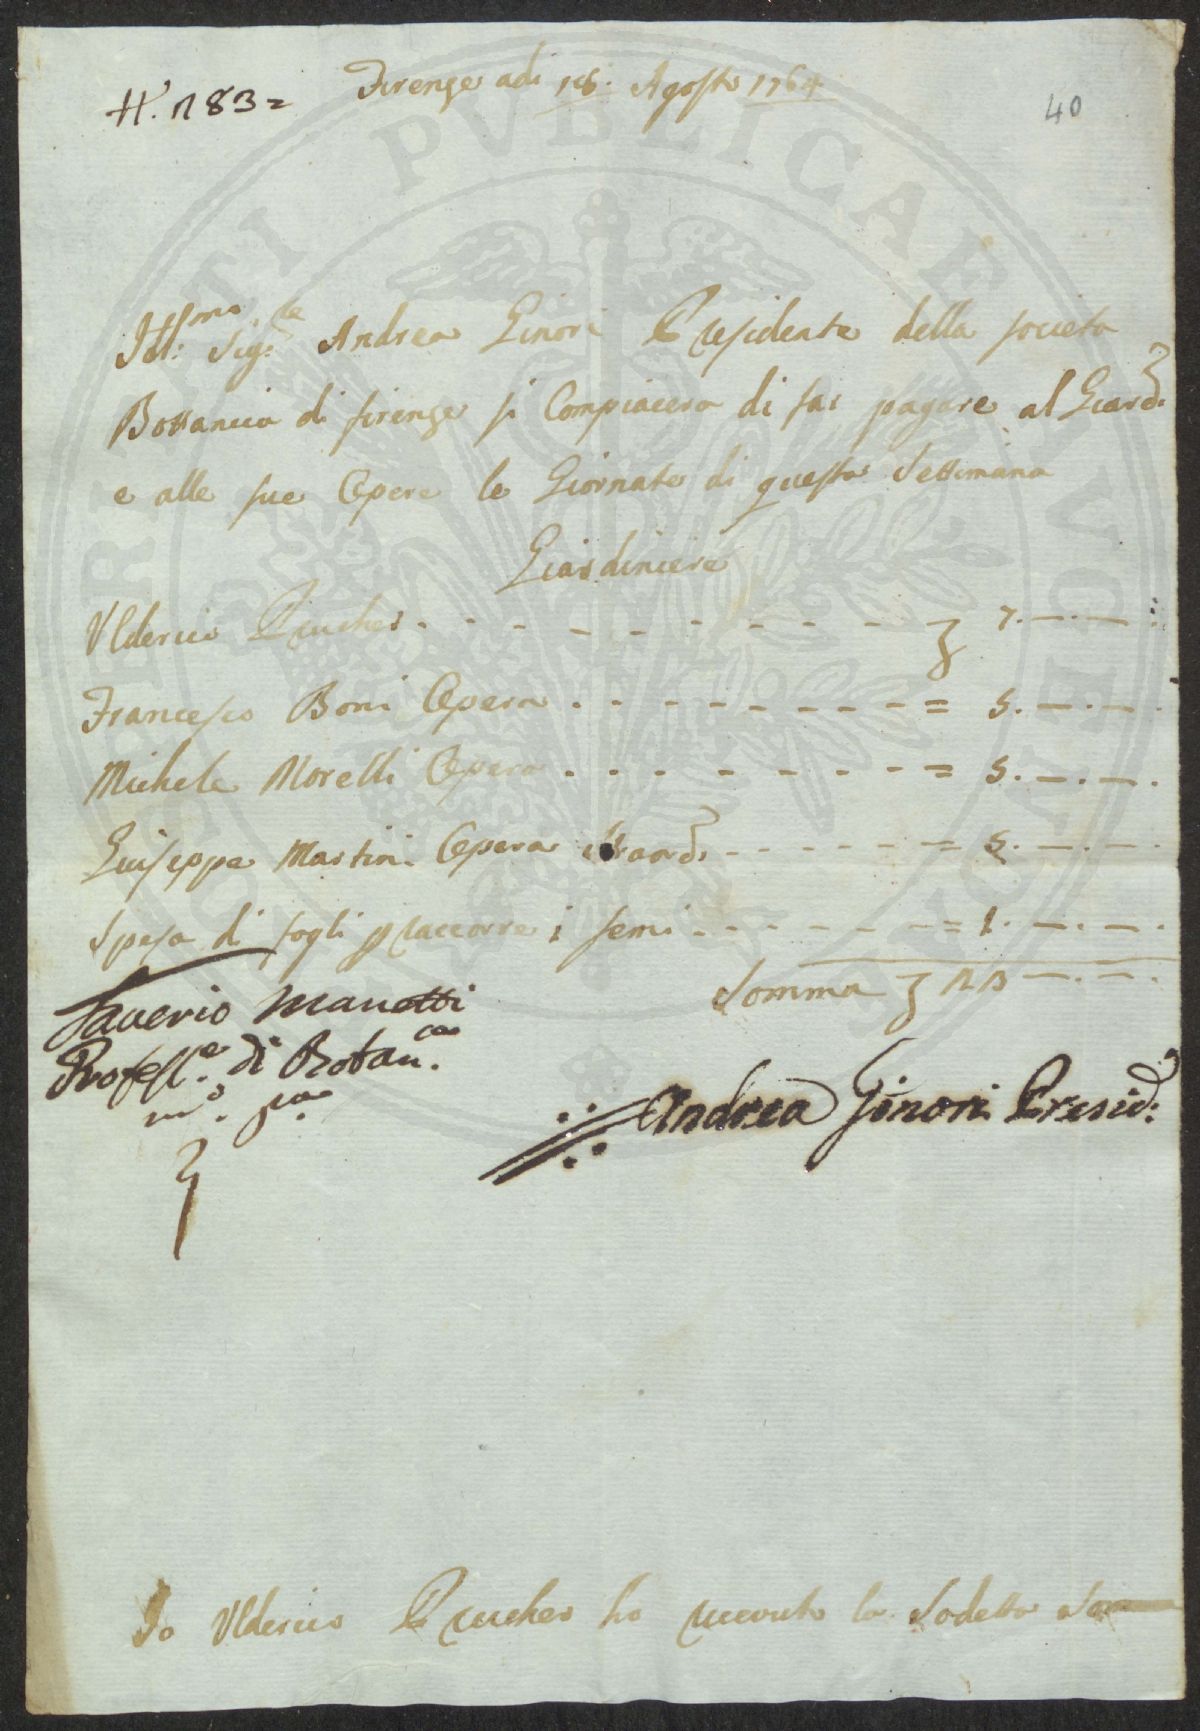 N. 183=
Firenze adi 18. Agosto 1764
40
Ill:mo Sig:re Andrea Ginori Presidente della Società
Bottanica di firenze si Compiacera di far pagare al Giard:
e alle sue Opere le Giornate di questa Settimana
Giardiniere
Ulderico Prucher - - - - - - - - - 7. — . — :
Francesco Boni Opera - - - - - - - - = 5. — . — .
Michele Morelli Opera - - - - - - - - = 5. — . — .
Giuseppe Martini Opera straord: - - - - - = 5. — . — .
Spesa di fogli p raccorre i semi - - - - - = 1. — . — .
Somma — . — .
Saverio Manetti
Profess.e di Botan.ca
m.o p.a
Andrea Ginori Presid:
Io Ulderico Prucher ho riceuto la Sodetta
PUBLICAE